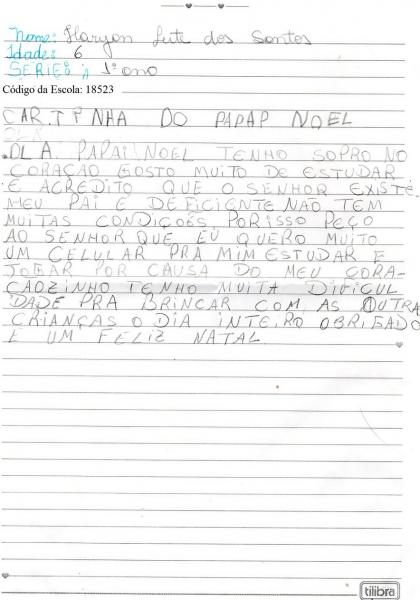 Nome: Haryon Leite dos Santos
Idade: 6
SERIE: 1º ano
Código da Escola: 18523
CARTINHA DO PAPAP NOEL
OLA PAPAI NOEL TENHO SOPRO NO
CORAÇÃO GOSTO MUITO DE ESTUDAR
E ACREDITO QUE O SENHOR EXISTE
MEU PAI E DEFICIENTE NÃO TEM
MUITAS CONDIÇOES PORISSO PEÇO
AO SENHOR QUE EU QUERO MUITO
UM CELULAR PRA MIM ESTUDAR E
JOGAR POR CAUSA DO MEU CORA-
CAOZINHO TENHO MUITA DIFICUL
DADE PRA BRINCAR COM AS OUTRA
CRIANÇAS O DIA INTEIRO OBRIGADO
E UM FELIZ NATAL
tilibra